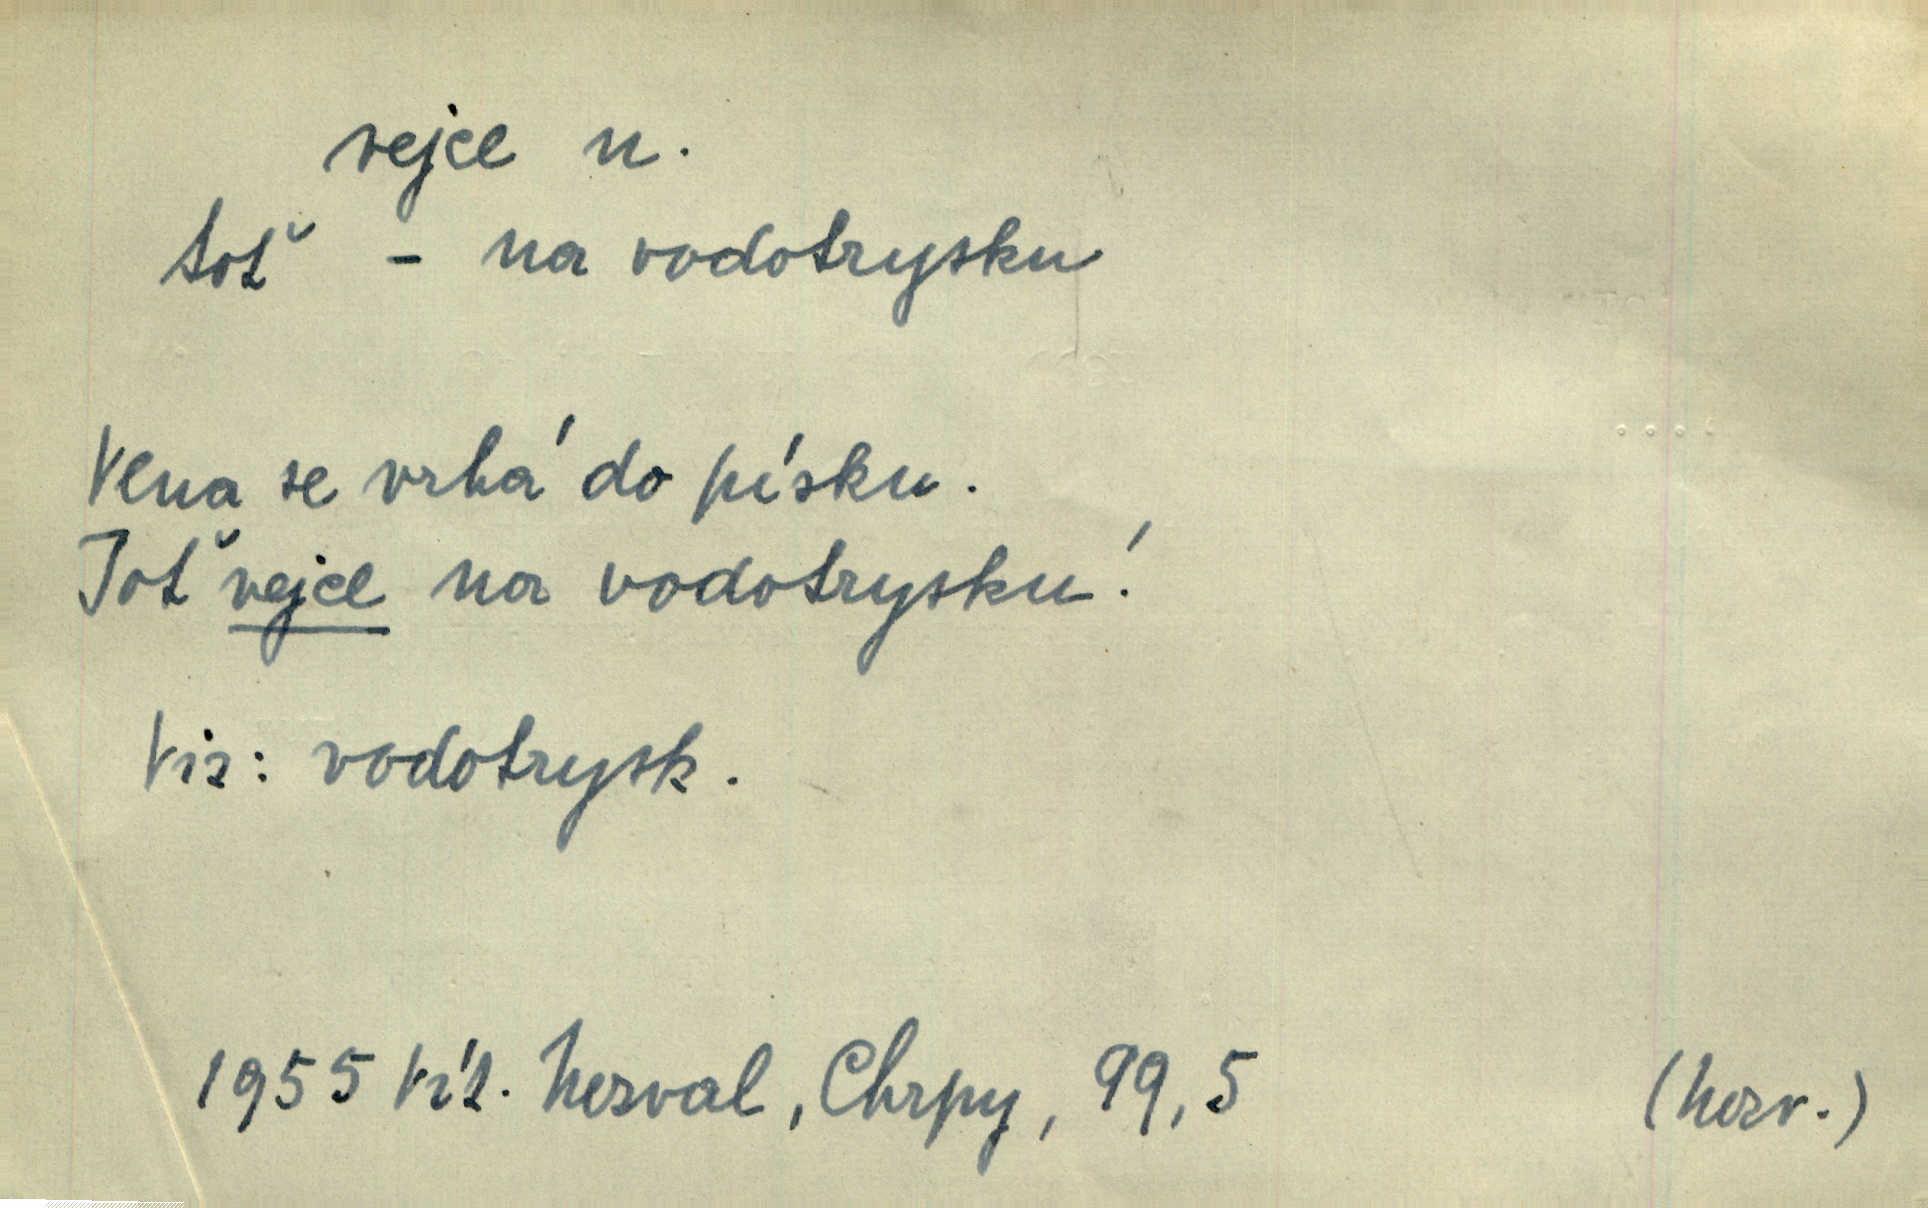 vejce n.
toť – na vodotrysku
Vlna se vrhá do písku.
Toť vejce na vodotrysku!
Viz: vodotrysk.
1955 Vít. Nezval, Chrpy, 99,5 (Nezv.)